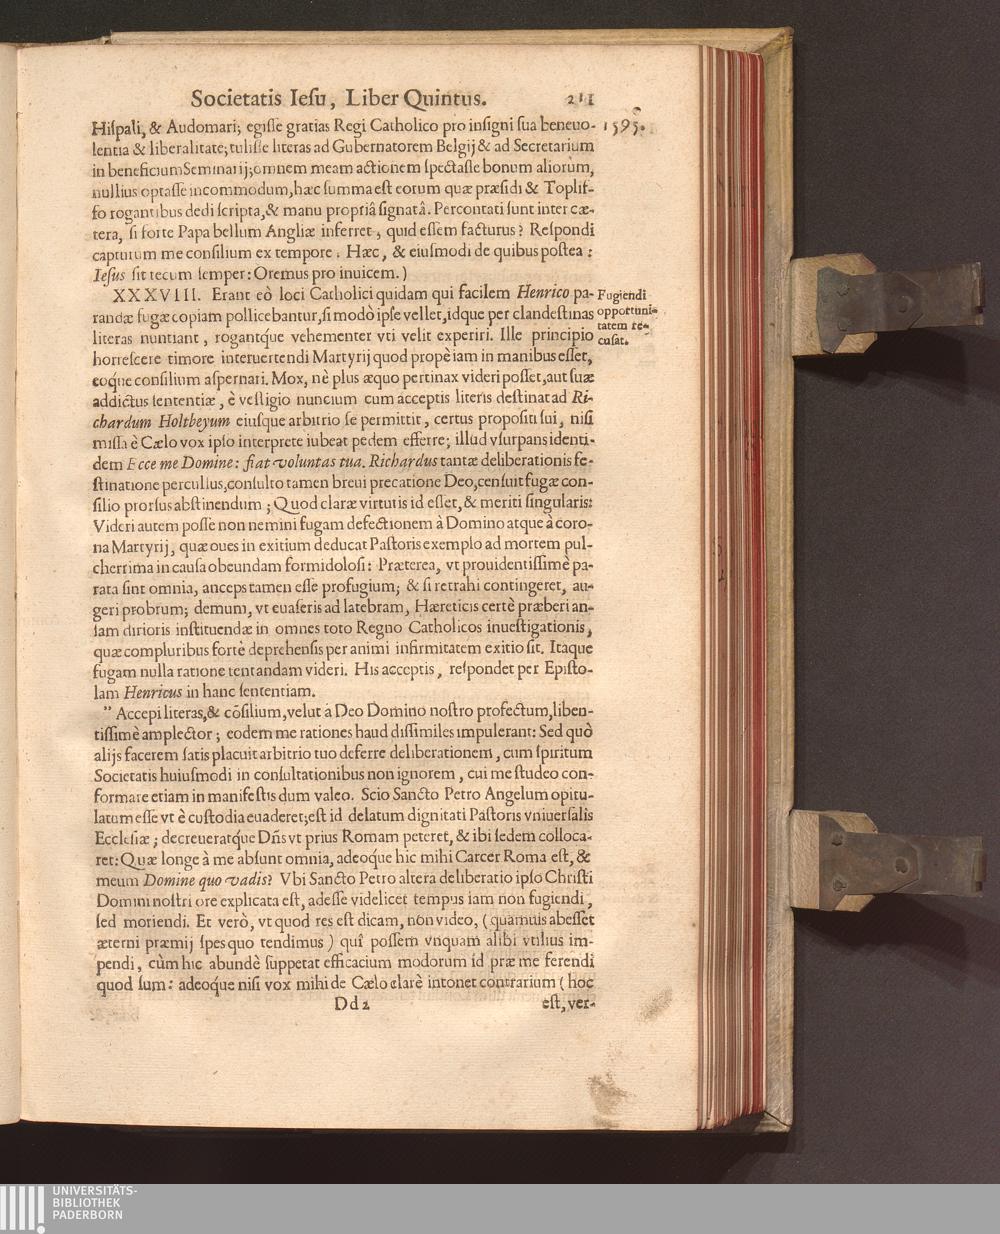 Societatis Iesu, Liber Quintus. 211
Hiſpali, & Audomari; egiſſe gratias Regi Catholico pro inſigni ſua beneuo- 1595.
lentia & liberalitate; tuliſſe literas ad Gubernatorem Belgij & ad Secretarium
in beneficium Seminarij; omnem meam actionem ſpectaſſe bonum aliorùm,
nullius optaſſe incommodum, hæc ſumma eſt eorum quæ præſidi & Toplif-
fo rogantibus dedi ſcripta, & manu propriâ ſignatâ. Percontati ſunt inter cæ-
tera, ſi forte Papa bellum Angliæ inferret, quid eſſem facturus? Reſpondi
capturum me conſilium ex tempore. Hæc, & eiuſmodi de quibus poſtea:
Ieſus ſit tecum ſemper: Oremus pro inuicem.)
XXXVIII. Erant eò loci Catholici quidam qui facilem Henrico pa-
randæ fugæ copiam pollicebantur, ſi modò ipſe vellet, idque per clandeſtinas
literas nuntiant, rogantq́ue vehementer vti velit experiri. Ille principio
horreſcere timore interuertendi Martyrij quod propè iam in manibus eſſet,
eoq́ue conſilium aſpernari. Mox, nè plus æquo pertinax videri poſſet, aut ſuæ
addictus ſententiæ, è veſtigio nuncium cum acceptis literis deſtinat ad Ri-
chardum Holtbeyum eiuſque arbitrio ſe permittit, certus propoſiti ſui, niſi
miſſa è Cælo vox ipſo interprete iubeat pedem efferre; illud vſurpans identi-
dem Ecce me Domine: fiat voluntas tua. Richardus tantæ deliberationis fe-
ſtinatione perculſus, conſulto tamen breui precatione Deo, cenſuit fugæ con-
ſilio prorſus abſtinendum; Quod claræ virtutis id eſſet, & meriti ſingularis:
Videri autem poſſe non nemini fugam defectionem à Domino atque à coro-
na Martyrij, quæ oues in exitium deducat Paſtoris exemplo ad mortem pul-
cherrima in cauſa obeundam formidoloſi: Præterea, vt prouidentiſſimè pa-
rata ſint omnia, anceps tamen eſſe profugium; & ſi retrahi contingeret, au-
geri probrum; demum, vt euaſeris ad latebram, Hæreticis certè præberi an-
ſam dirioris inſtituendæ in omnes toto Regno Catholicos inueſtigationis,
quæ compluribus fortè deprehenſis per animi infirmitatem exitio ſit. Itaque
fugam nulla ratione tentandam videri. His acceptis, reſpondet per Epiſto-
lam Henricus in hanc ſententiam.
Fugiendi
opportuni-
tatem re-
cuſat.
” Accepi literas, & cõſilium, velut à Deo Domino noſtro profectum, liben-
tiſſimè amplector; eodem me rationes haud diſſimiles impulerant: Sed quò
alijs facerem ſatis placuit arbitrio tuo deferre deliberationem, cum ſpiritum
Societatis huiuſmodi in conſultationibus non ignorem, cui me ſtudeo con-
formare etiam in manifeſtis dum valeo. Scio Sancto Petro Angelum opitu-
latum eſſe vt è cuſtodia euaderet; eſt id delatum dignitati Paſtoris vniuerſalis
Eccleſiæ; decreueratq́ue Dñs vt prius Romam peteret, & ibi ſedem colloca-
ret: Quæ longe à me abſunt omnia, adeoque hic mihi Carcer Roma eſt, &
meum Domine quo vadis? Vbi Sancto Petro altera deliberatio ipſo Chriſti
Domini noſtri ore explicata eſt, adeſſe videlicet tempus iam non fugiendi,
ſed moriendi. Et verò, vt quod res eſt dicam, non video, (quamuis abeſſet
æterni præmij ſpes quo tendimus) quî poſſem vnquam alibi vtilius im-
pendi, cùm hic abundè ſuppetat efficacium modorum id præ me ferendi
quod ſum: adeoq́ue niſi vox mihi de Cælo clarè intonet contrarium (hoc
Dd 2 eſt, ver-
UNIVERSITÄTS-
BIBLIOTHEK
PADERBORN